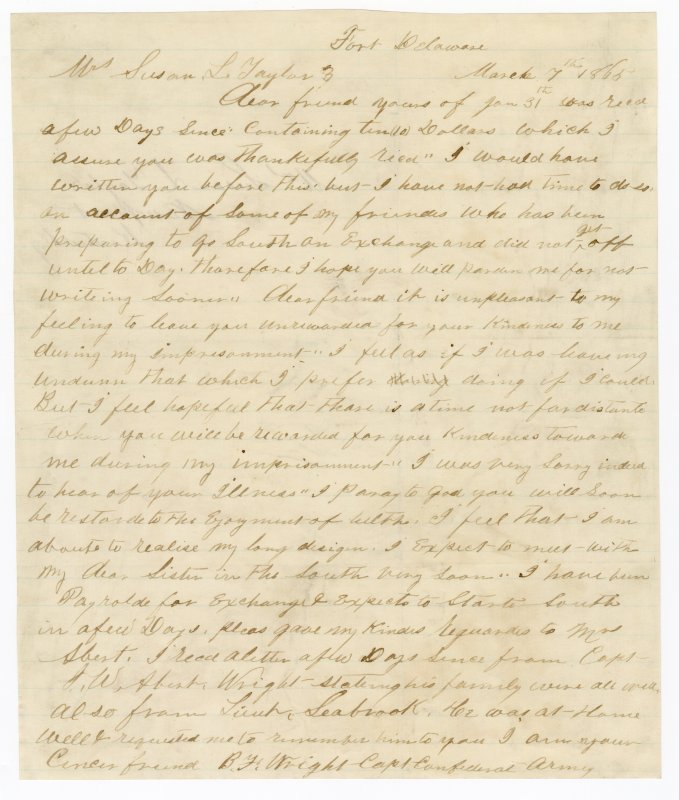 Fort Delaware
Mrs Susan L Taylor 3 March 7th 1865
Dear friend yours of Jan 31th was recd
afew Days Since: Containing ten 10 Dollars which I
assure you was thankefully recd" I would have
written you before this: but I have not had time to do so.
on account of Some of my friendes who has been
prepairing to go South on Exchange and did not get off
untel to Day. tharefore I hope you will pardin me for not
writeing Sooner" dear friend it is unpleasant to my
feeling to leave you unrewarded for your Kindness to me
during my imprisonment" I feel as if I was leaveing
undunn that which I prefer doing if I could.
But I feel hopeful that thare is a time not far distante
when you will be rewarded for you Kindness toward
me during my imprisonment" I was very Sorry indeed
to hear of your Illness" I Paray to God you will Soon
be restorde to the Ejoyment of helth. I feel that I am
aboute to realise my long design. I Expect to meet with
my dear Sister in the South very Soon" I have been
Payrolde for Exchange & Expects to Starte South
in afew Days. pleas gave my Kindes reguardes to Mrs
Abert. I recd a letter afew Days Since from Capt
J. W. Abert. Wright stateing his family were all well.
also from Lieut. Seabrook. He was at Home
well & requested me to remember him to you I am your
Cincer friend B. F. Wright Capt Confederat Army